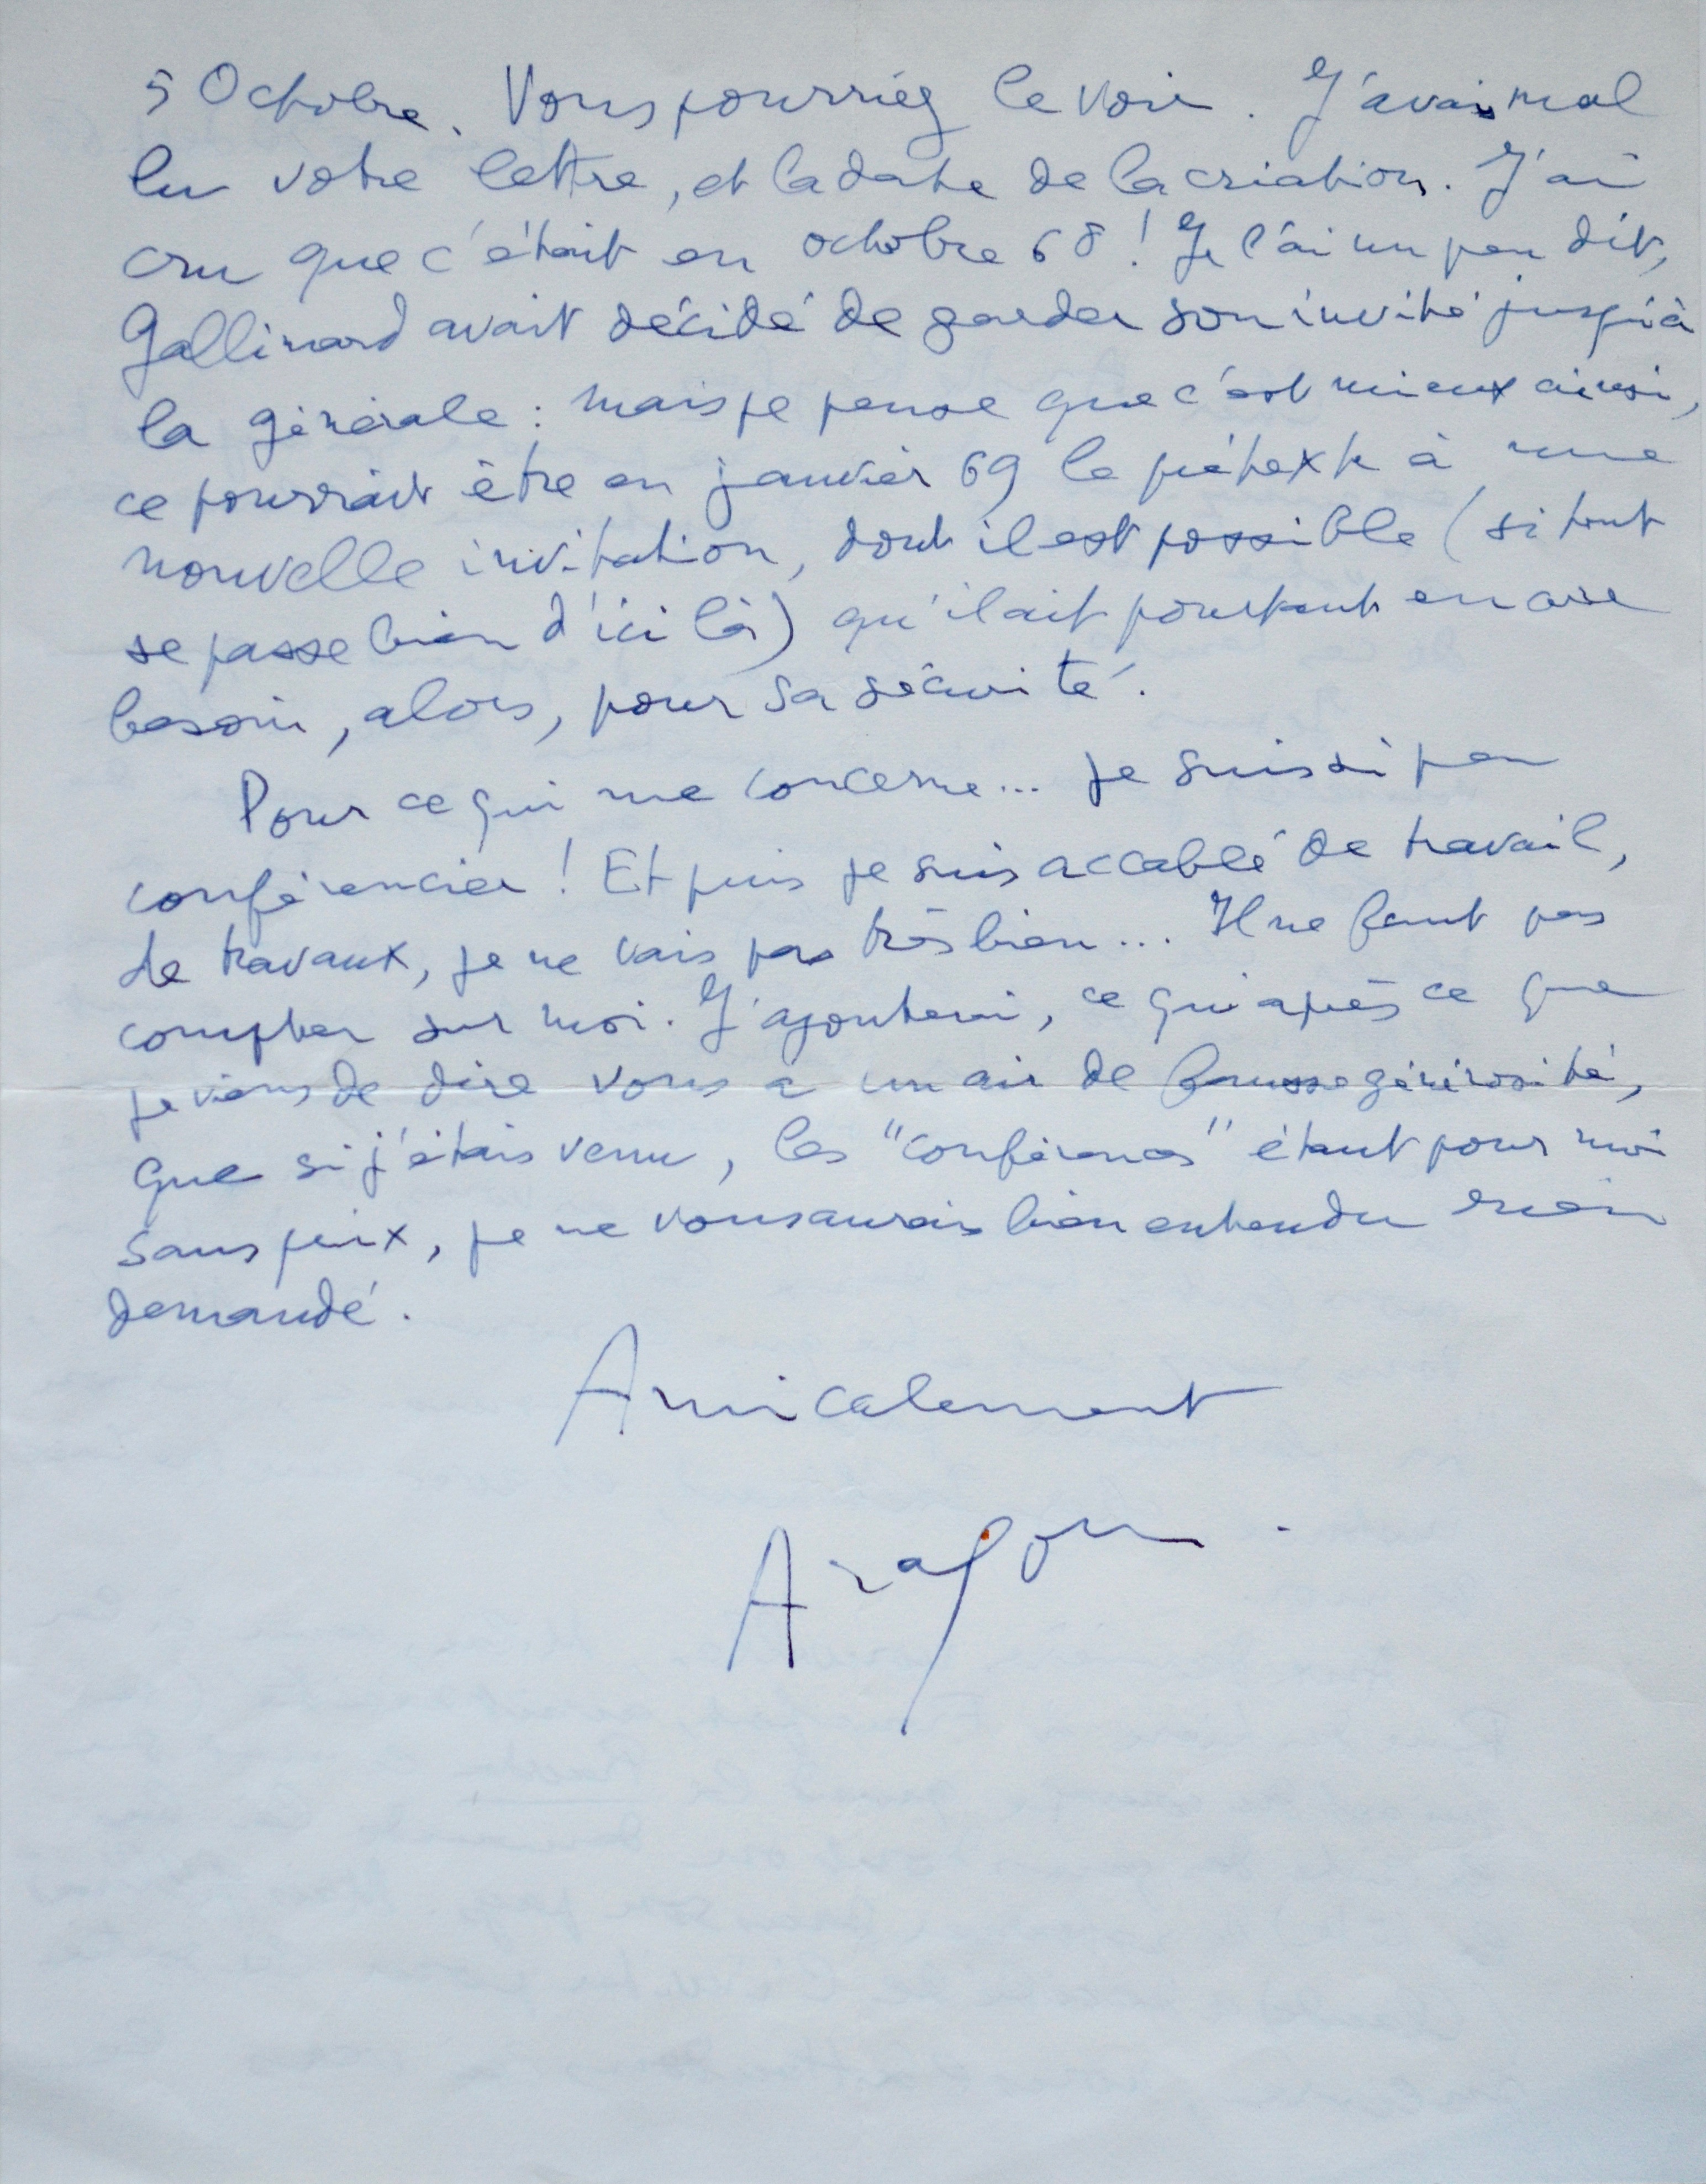 5 Octobre. Vous pourriez le voir. J'avais mal
lu votre lettre, et la date de la création. J'ai
cru que c'était en octobre 68 ! Je l'ai un peu dit,
Gallimard avait décidé de garder son invité jusqu'à
la générale : mais je pense que c'est mieux ainsi,
ce pourrait être en janvier 69 le prétexte à une
nouvelle invitation, dont il est possible (si tout
se passe bien d'ici là) qu'il ait pourtant encore
besoin, alors, pour sa sécurité.
Pour ce qui me concerne... je suis si peu
conférencier ! Et puis je suis accablé de travail,
de travaux, je ne vais pas très bien... Il ne faut pas
compter sur moi. J'ajouterai, ce qui après ce que
je viens de dire vous a un air de fausse générosité,
que si j'étais venu, les "conférences" étant pour moi
sans prix, je ne vous aurais bien entendu rien
demandé.
Amicalement
Aragon.